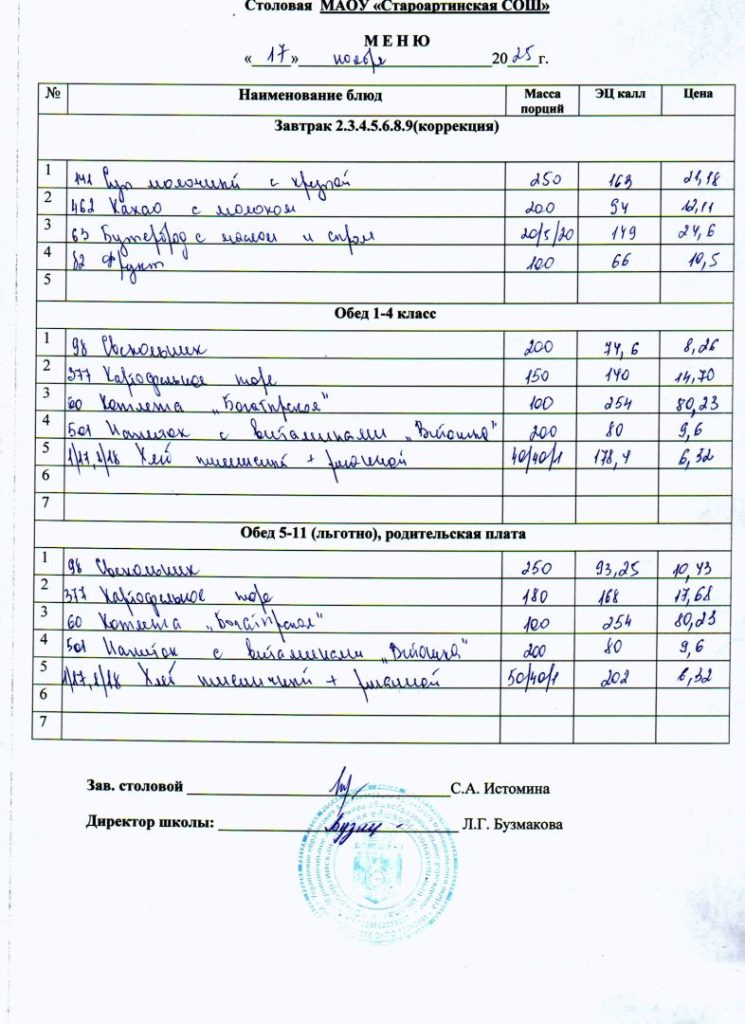 Столовая МАОУ «Староартинская СОШ»
М Е Н Ю
«17» ноября 2025г.
№ Наименование блюд Масса порций ЭЦ калл Цена
Завтрак 2.3.4.5.6.8.9(коррекция)
1 141 Суп молочный с крупой 250 163 21,18
2 462 Какао с молоком 200 94 12,11
3 63 Бутерброд с маслом и сыром 20/5/20 149 24,6
4 82 Фрукт 100 66 10,5
5
Обед 1-4 класс
1 98 Свекольник 200 74,6 8,26
2 377 Картофельное пюре 150 140 14,70
3 60 Котлета „Богатырская" 100 254 80,23
4 501 Напиток с витаминами „Витошка" 200 80 9,6
5 1/17,1/18 Хлеб пшеничный + ржаной 40/40/1 178,4 6,32
6
7
Обед 5-11 (льготно), родительская плата
1 98 Свекольник 250 93,25 10,43
2 377 Картофельное пюре 180 168 17,68
3 60 Котлета „Богатырская" 100 254 80,23
4 501 Напиток с витаминами „Витошка" 200 80 9,6
5 1/17,1/18 Хлеб пшеничный + ржаной 50/40/1 202 6,32
6
7
Зав. столовой С.А. Истомина
Директор школы: Л.Г. Бузмакова